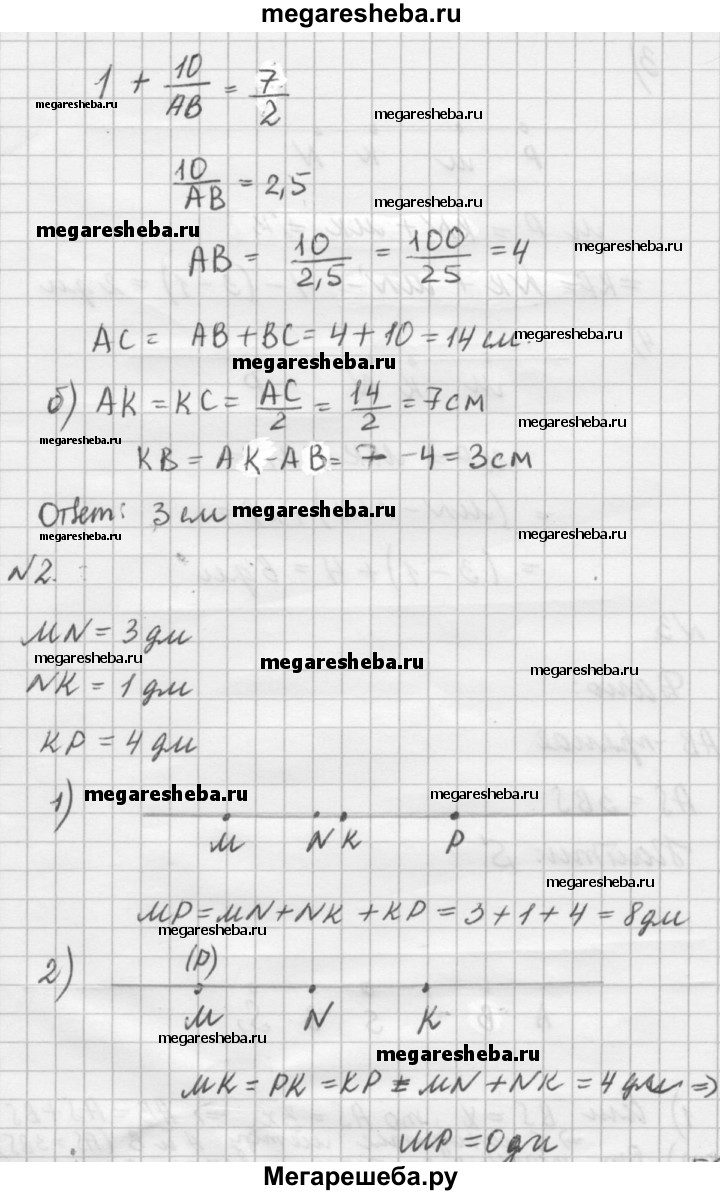 megaresheba.ru
1 + 10/AB = 7/2
megaresheba.ru megaresheba.ru
10/AB = 2,5
megaresheba.ru
AB = 10/2,5 = 100/25 = 4 megaresheba.ru
AC = AB + BC = 4 + 10 = 14 см. megaresheba.ru
megaresheba.ru
б) AK = KC = AC/2 = 14/2 = 7 см
megaresheba.ru
KB = AK - AB = 7 - 4 = 3 см
Ответ: 3 см megaresheba.ru megaresheba.ru
megaresheba.ru
№2.
MN = 3 дм
megaresheba.ru megaresheba.ru megaresheba.ru
NK = 1 дм
KP = 4 дм
1) megaresheba.ru megaresheba.ru
M N K P
megaresheba.ru
MP = MN + NK + KP = 3 + 1 + 4 = 8 дм
megaresheba.ru
2) (P)
M N K
megaresheba.ru megaresheba.ru
MK = PK = KP = MN + NK = 4 дм ⇒
MP = 0 дм
Мегарешеба.ру